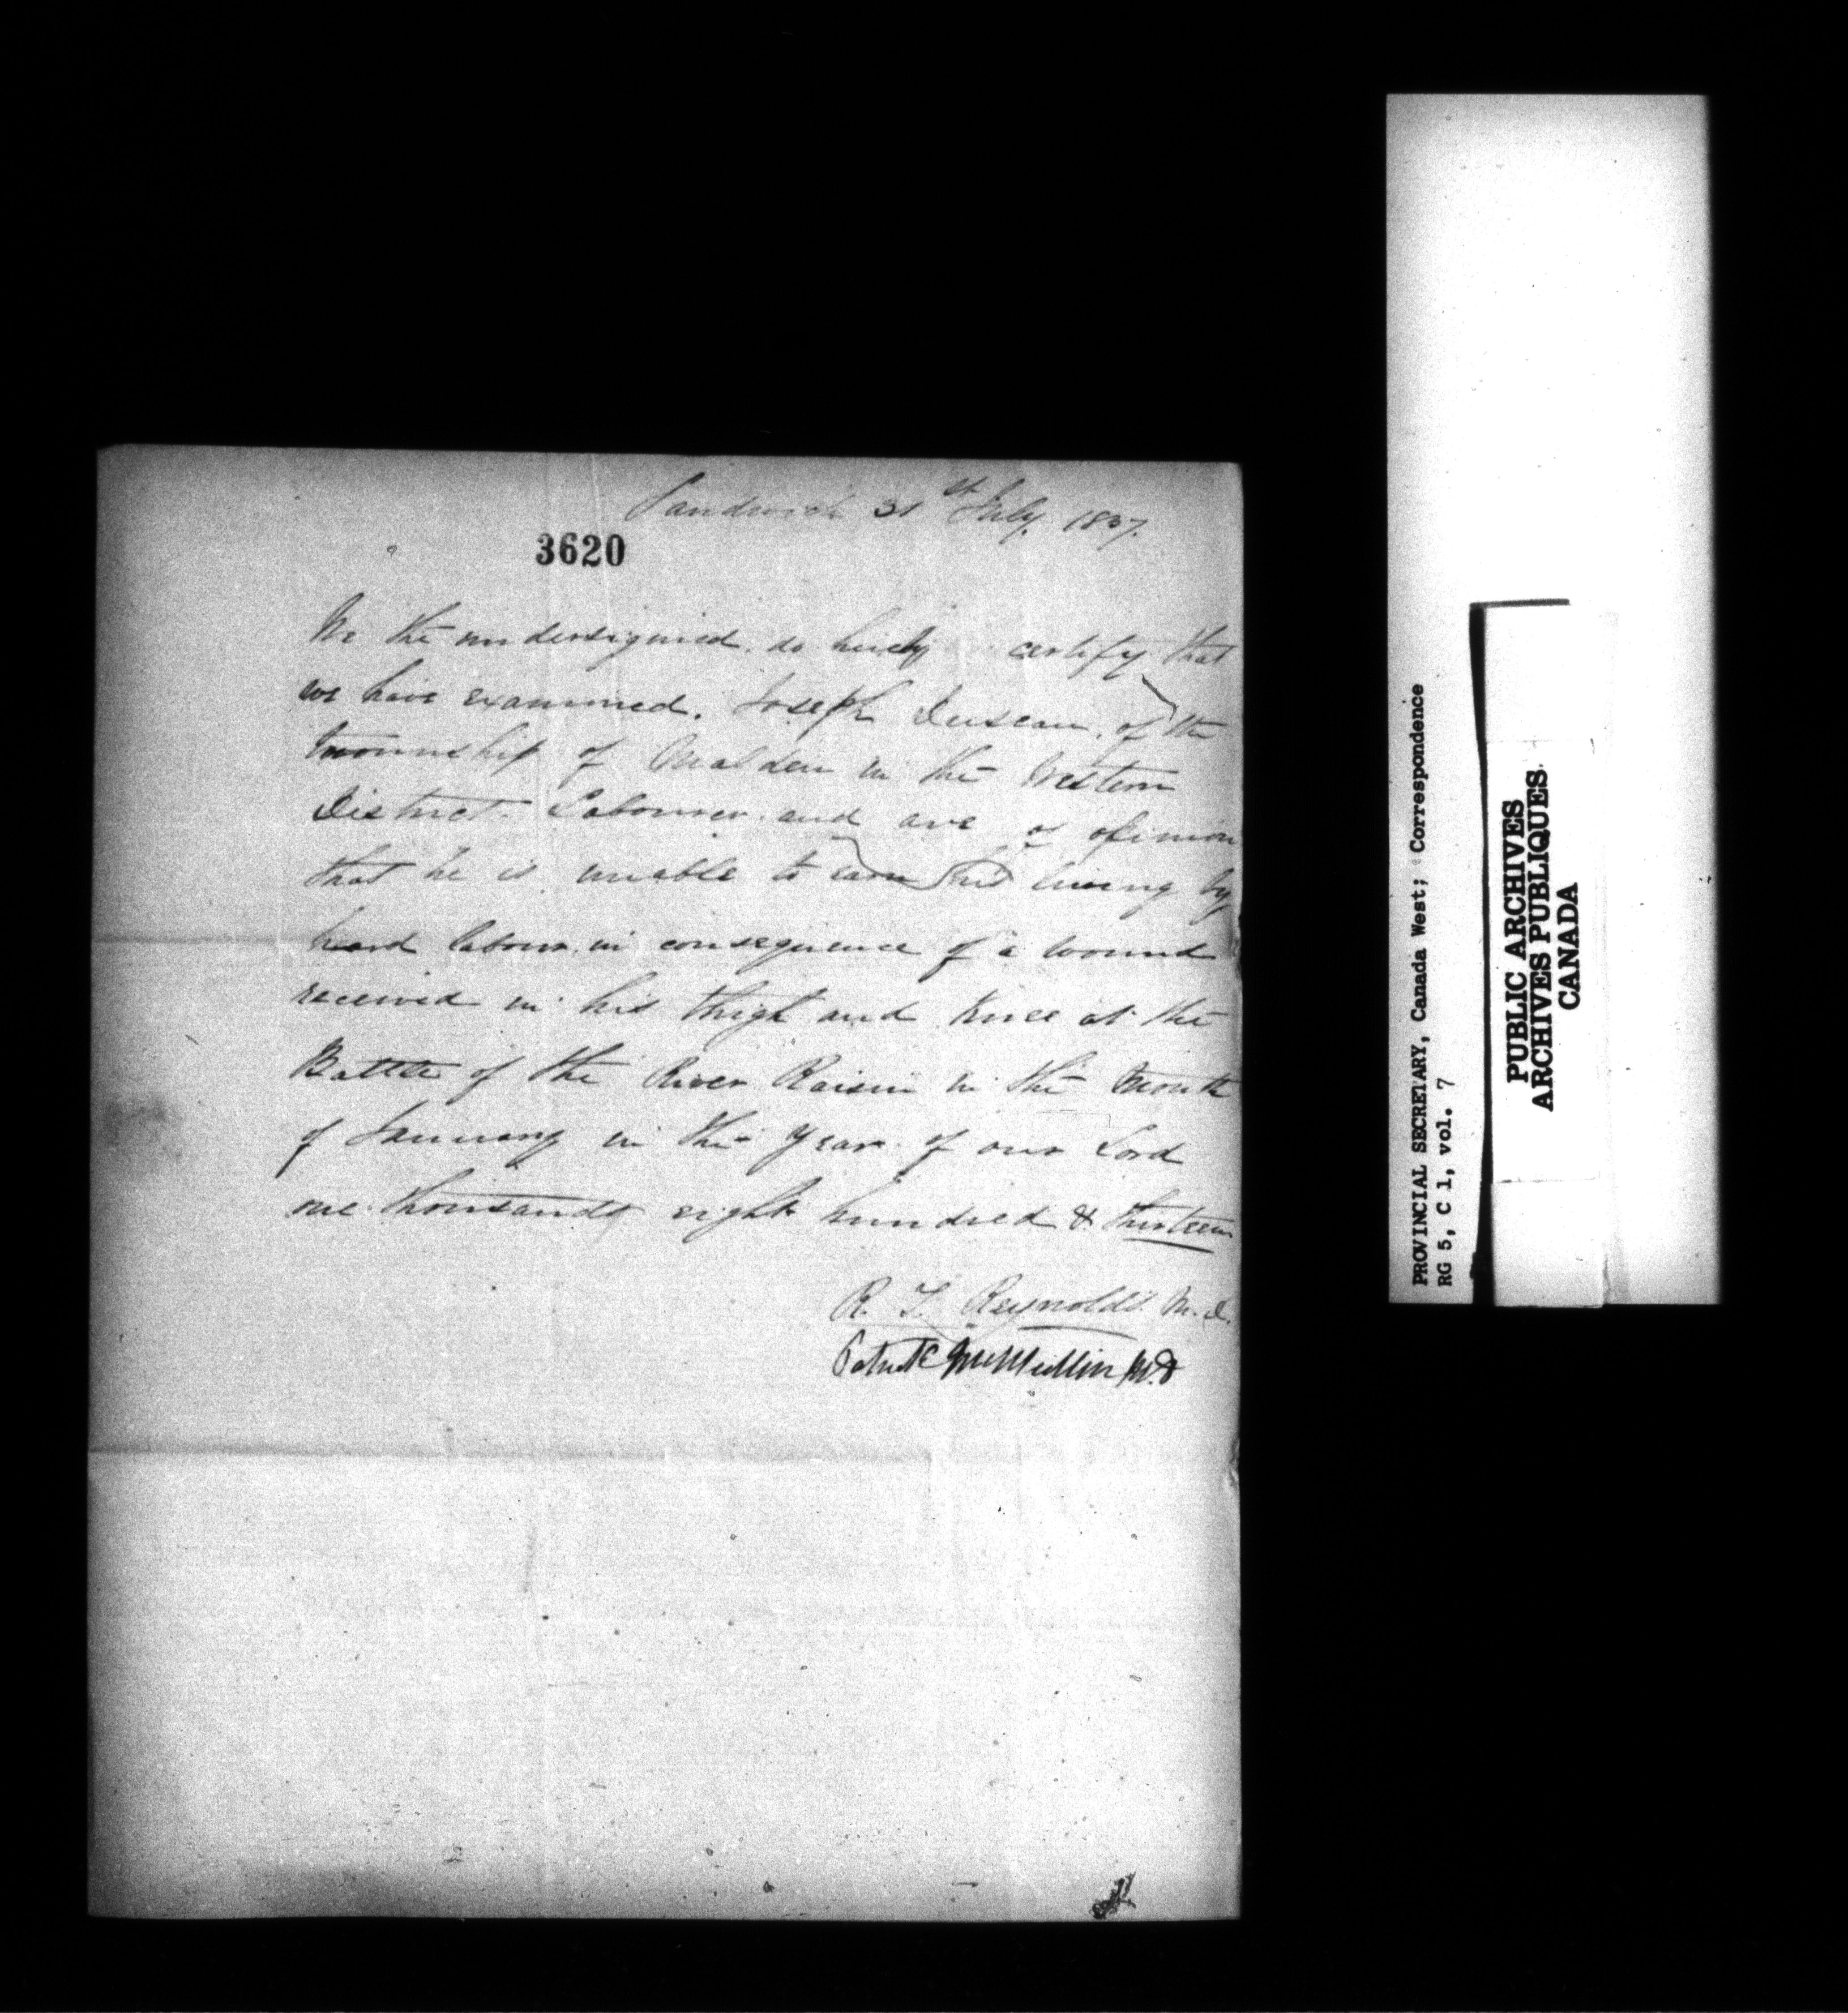 Sandwich 31st July. 1837.
3620
We the undersigned. do hereby certify that
we have examined. Joseph Duseau, of the
Township of Malden in the Western
District. Labourer. and are of opinion
that he is unable to earn his living by
hard labour. in consequence of a wound
received in his thigh and knee at the
Battle of the River Raisin in the month
of January in the year of our Lord
one thousand eight hundred & thirteen
R. T. Reynolds. M.D.
Patrick McMullin M.D
PROVINCIAL SECRETARY, Canada West; Correspondence
RG 5, C 1, vol. 7
PUBLIC ARCHIVES
ARCHIVES PUBLIQUES
CANADA